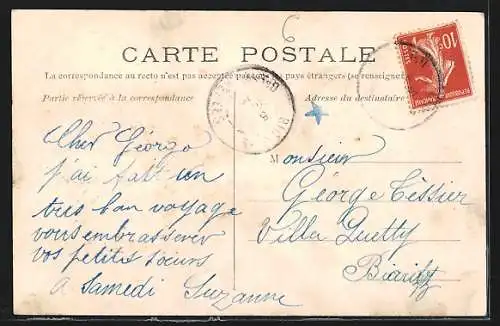 6
CARTE POSTALE
La correspondance au recto n'est pas acceptée pays étrangers (se renseigner
Partie réservée à la correspondance
Adresse du destinataire
10c
Cher Géorge
j'ai fait un
très bon voyage
vous embrasserer
vos petits sœurs
a Samedi Suzanne
Monsieur
Géorge Tessier
Villa Duetty
Biarritz